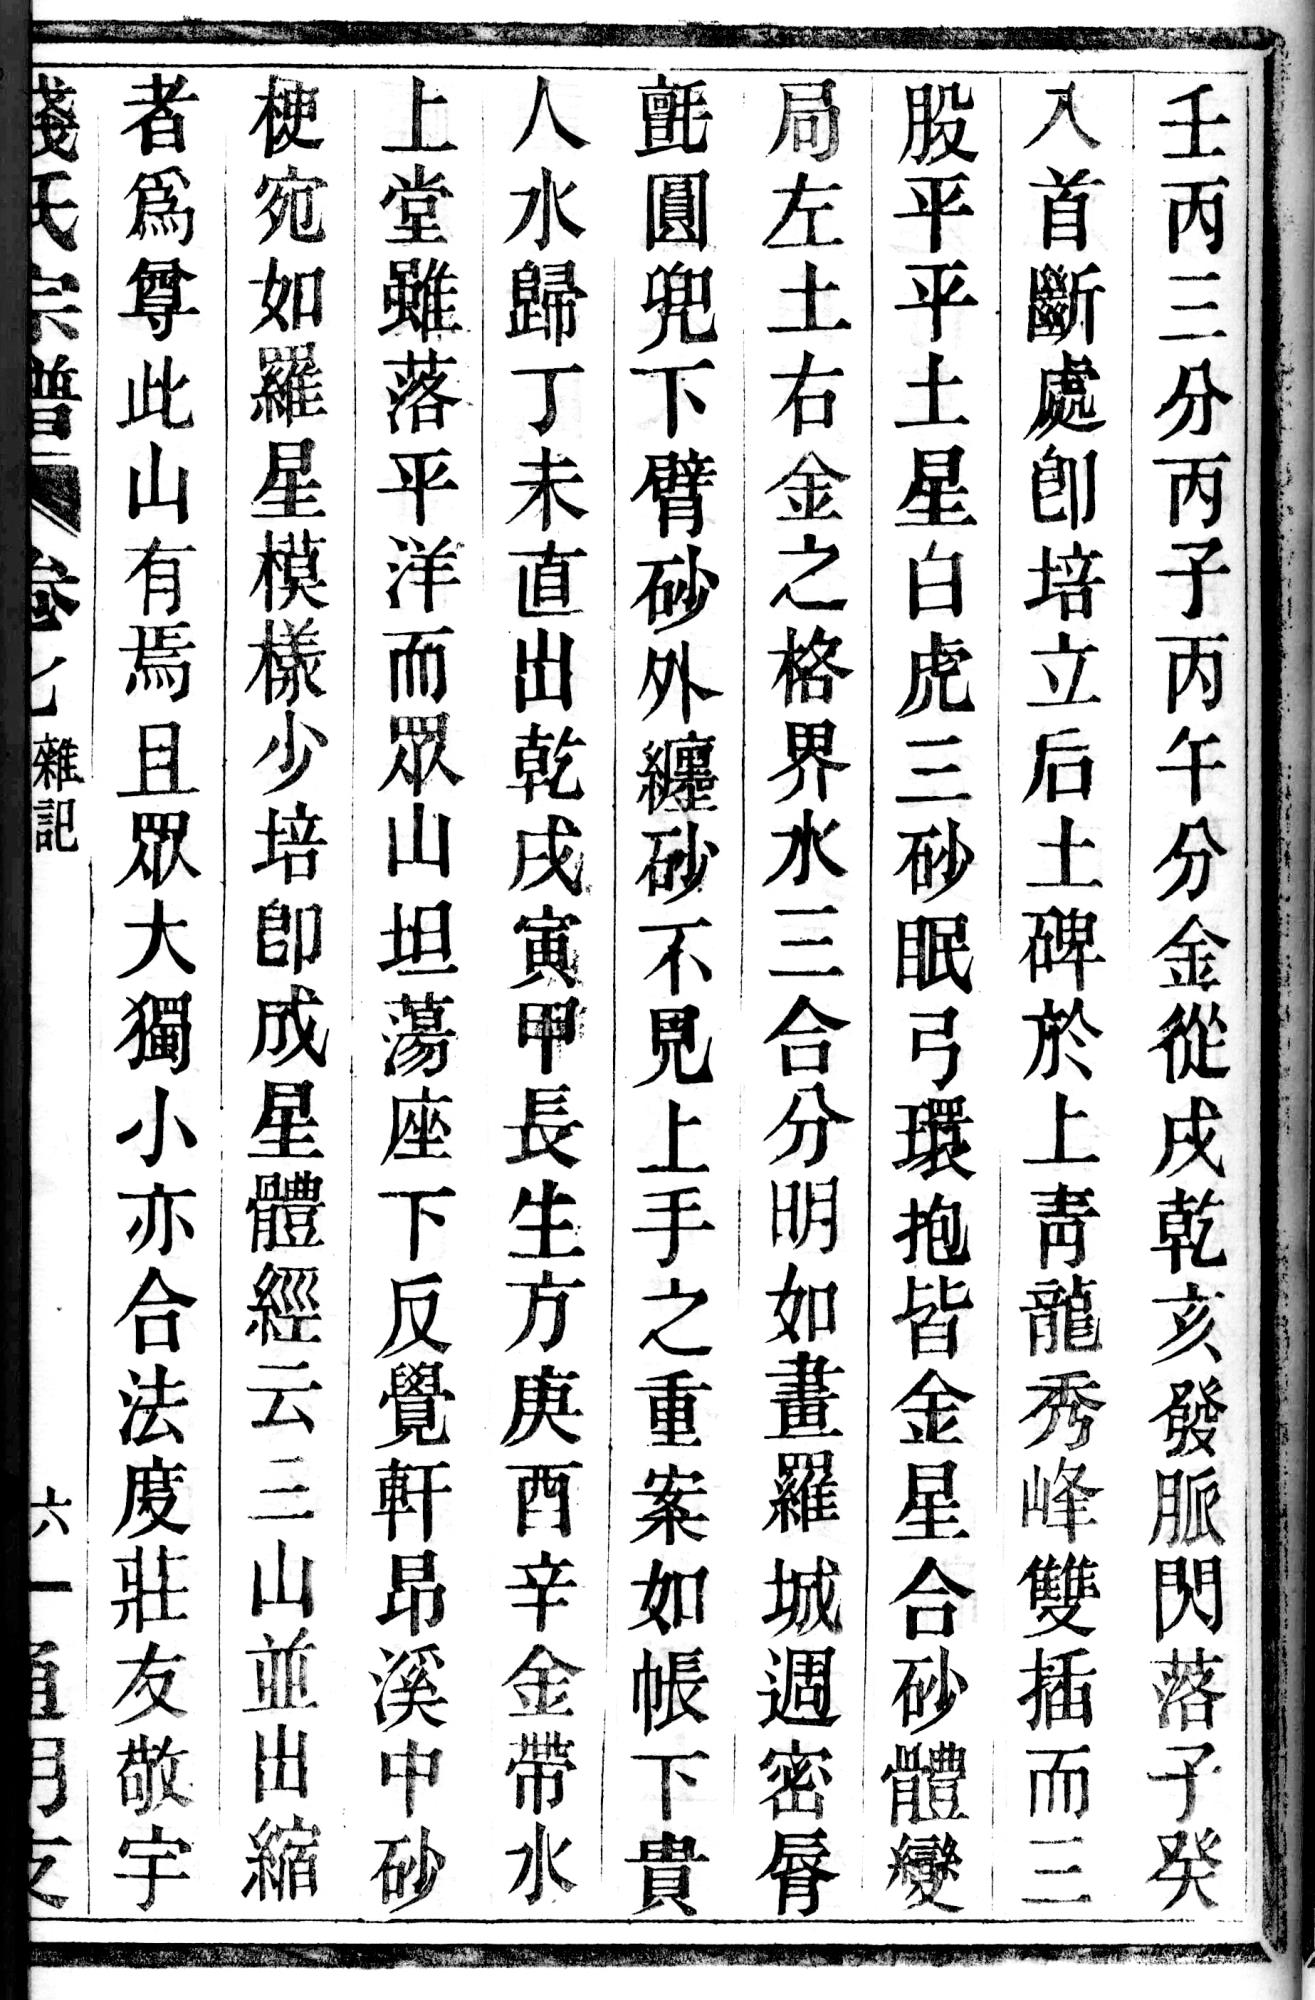 壬丙三分丙子丙午分金從戌乾亥發脈閃落子癸
入首斷處卽培立后土碑於上靑龍秀峰雙插而三
股平平土星白虎三砂眠弓環抱皆金星合砂體變
局左土右金之格界水三合分明如畫羅城週密脣
氈圓兜下臂砂外纏砂不見上手之重案如帳下貴
人水歸丁未直出乾戌寅甲長生方庚酉辛金帶水
上堂雖落平洋而眾山坦蕩座下反覺軒昂溪中砂
梗宛如羅星模樣少培卽成星體經云三山並出縮
者爲尊此山有焉且眾大獨小亦合法度莊友敬宇
錢氏宗譜 卷七 雜記 六一 通明支